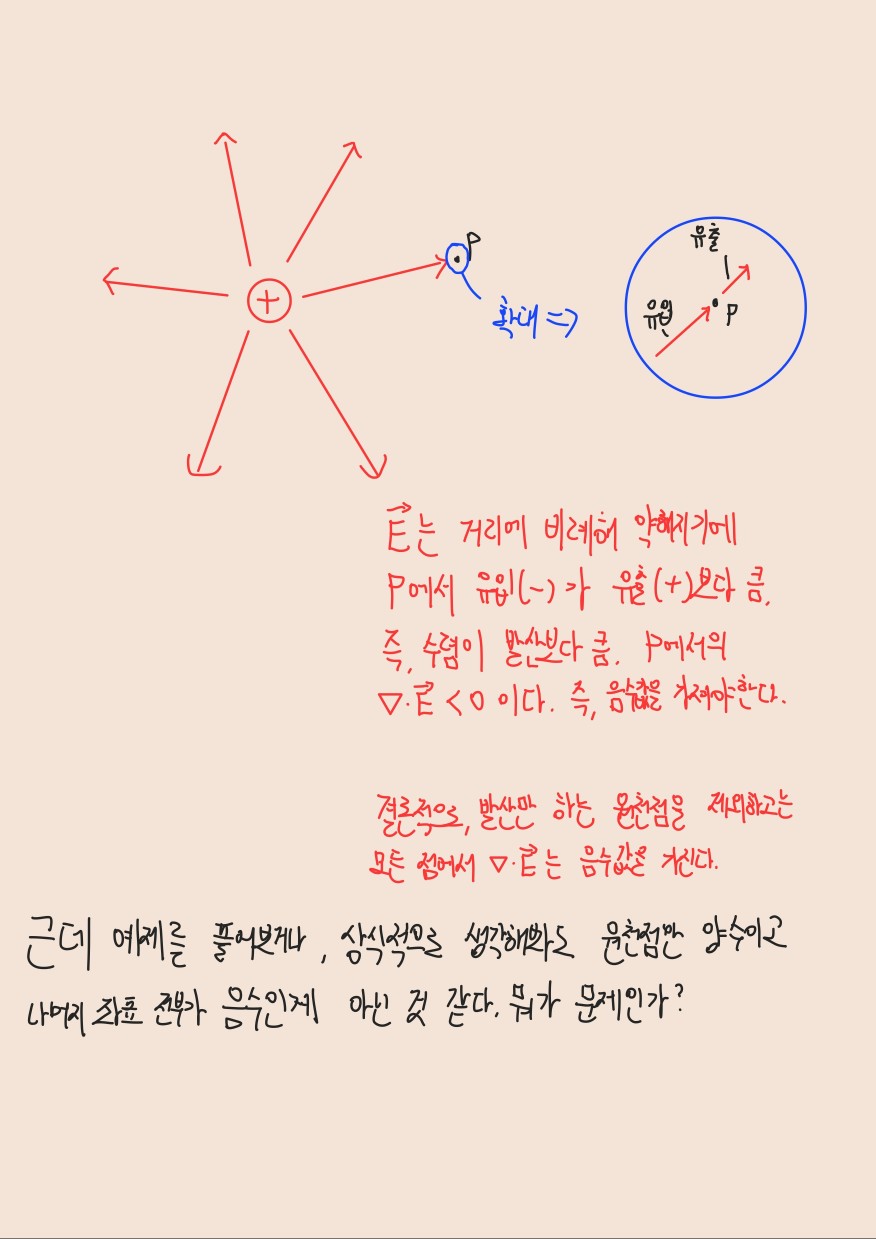 +
P
확대 =>
유출
유입
P
E는 거리에 비례해 약해지기에
P에서 유입(-)가 유출(+)보다 큼.
즉, 수렴이 발산보다 큼. P에서의
▽·E < 0 이다. 즉, 음수값을 가져야한다.
결론적으로, 발산만 하는 원천점을 제외하고는
모든 점에서 ▽·E는 음수값을 가진다.
근데 예제를 풀어보거나, 상식적으로 생각해봐도 원천점만 양수이고
나머지 좌표 전부가 음수인게 아닌 것 같다. 뭐가 문제인가?